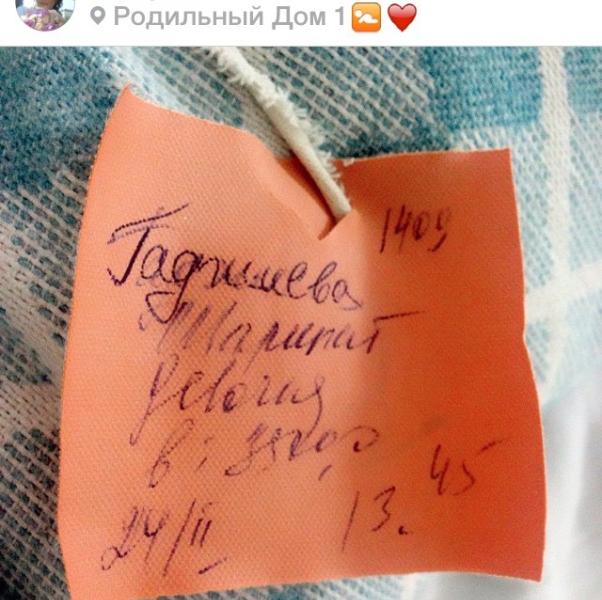 Родильный Дом 1
1409
Гаджиева
Шарипат
девочка
в:
24/II 13.45